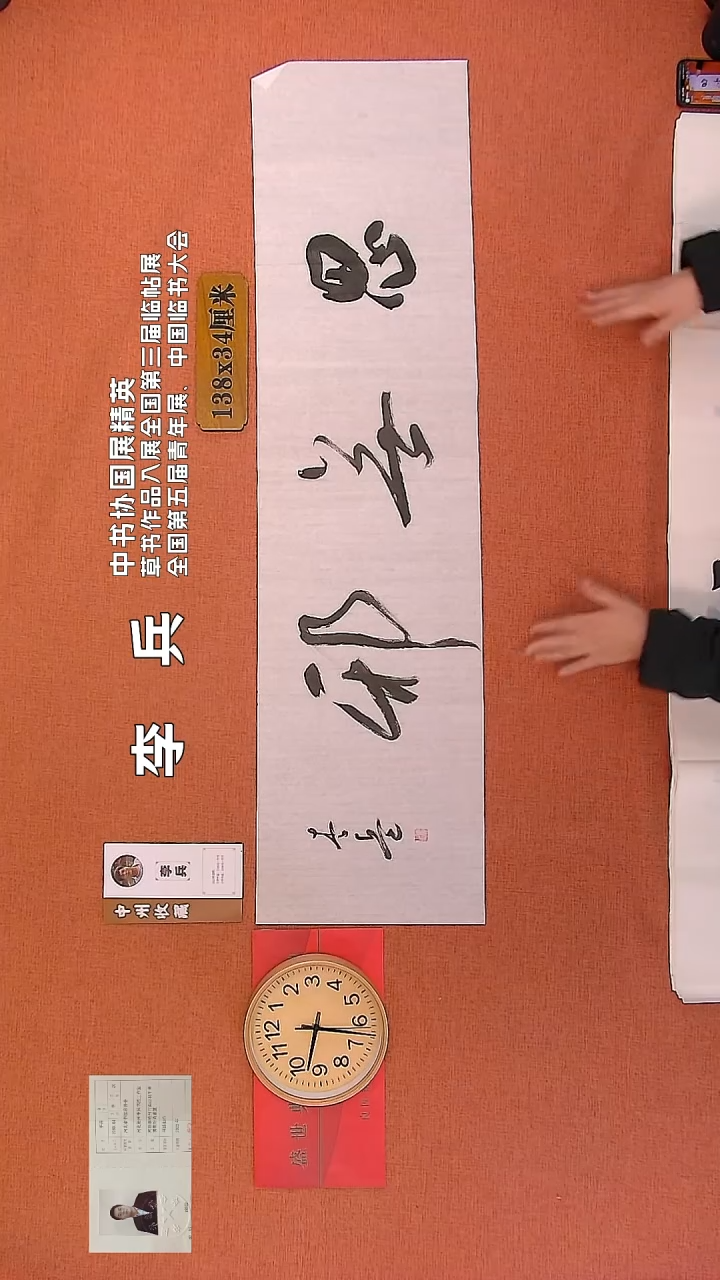 中书协国展精英
草书作品入展全国第三届临帖展
全国第五届青年展、中国临书大会
李 兵
138x34厘米
思无邪
李兵
李兵
中州收藏
盛世
12 1 2 3 4 5 6 7 8 9 10 11